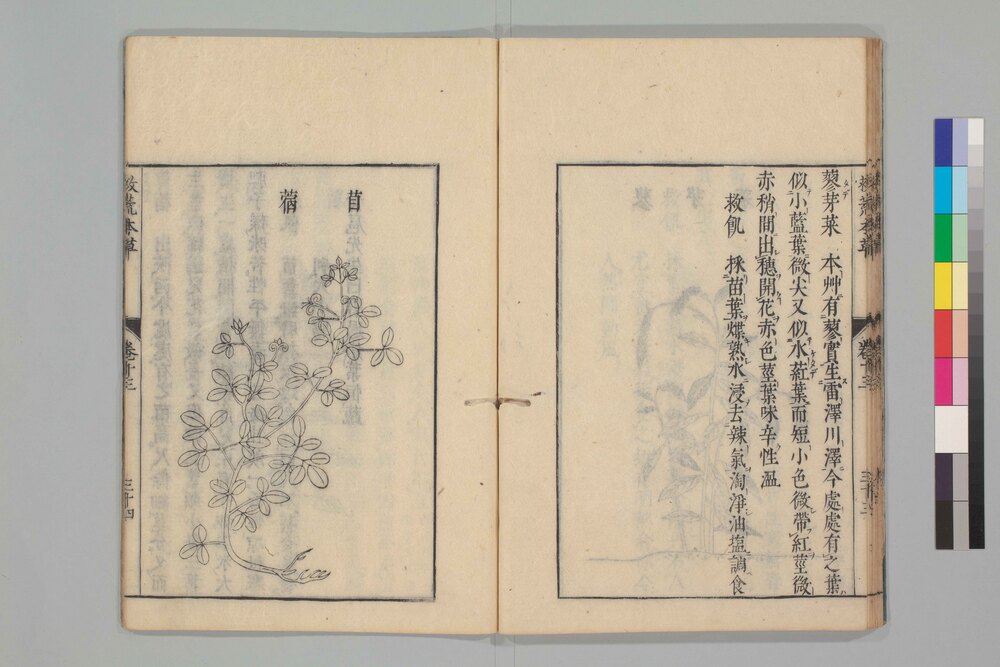 蓼芽菜　本艸有蓼實生雷澤川澤今處處有之葉
似小藍葉微尖又似水葒葉而短小色微帶紅莖微
赤稍間出穗開花赤色莖葉味辛性溫
救飢　採苗葉煠熟水浸去辣氣淘淨油塩調食
救荒本草
卷十三
三十三
苜
蓿
救荒本草
卷十三
三十四